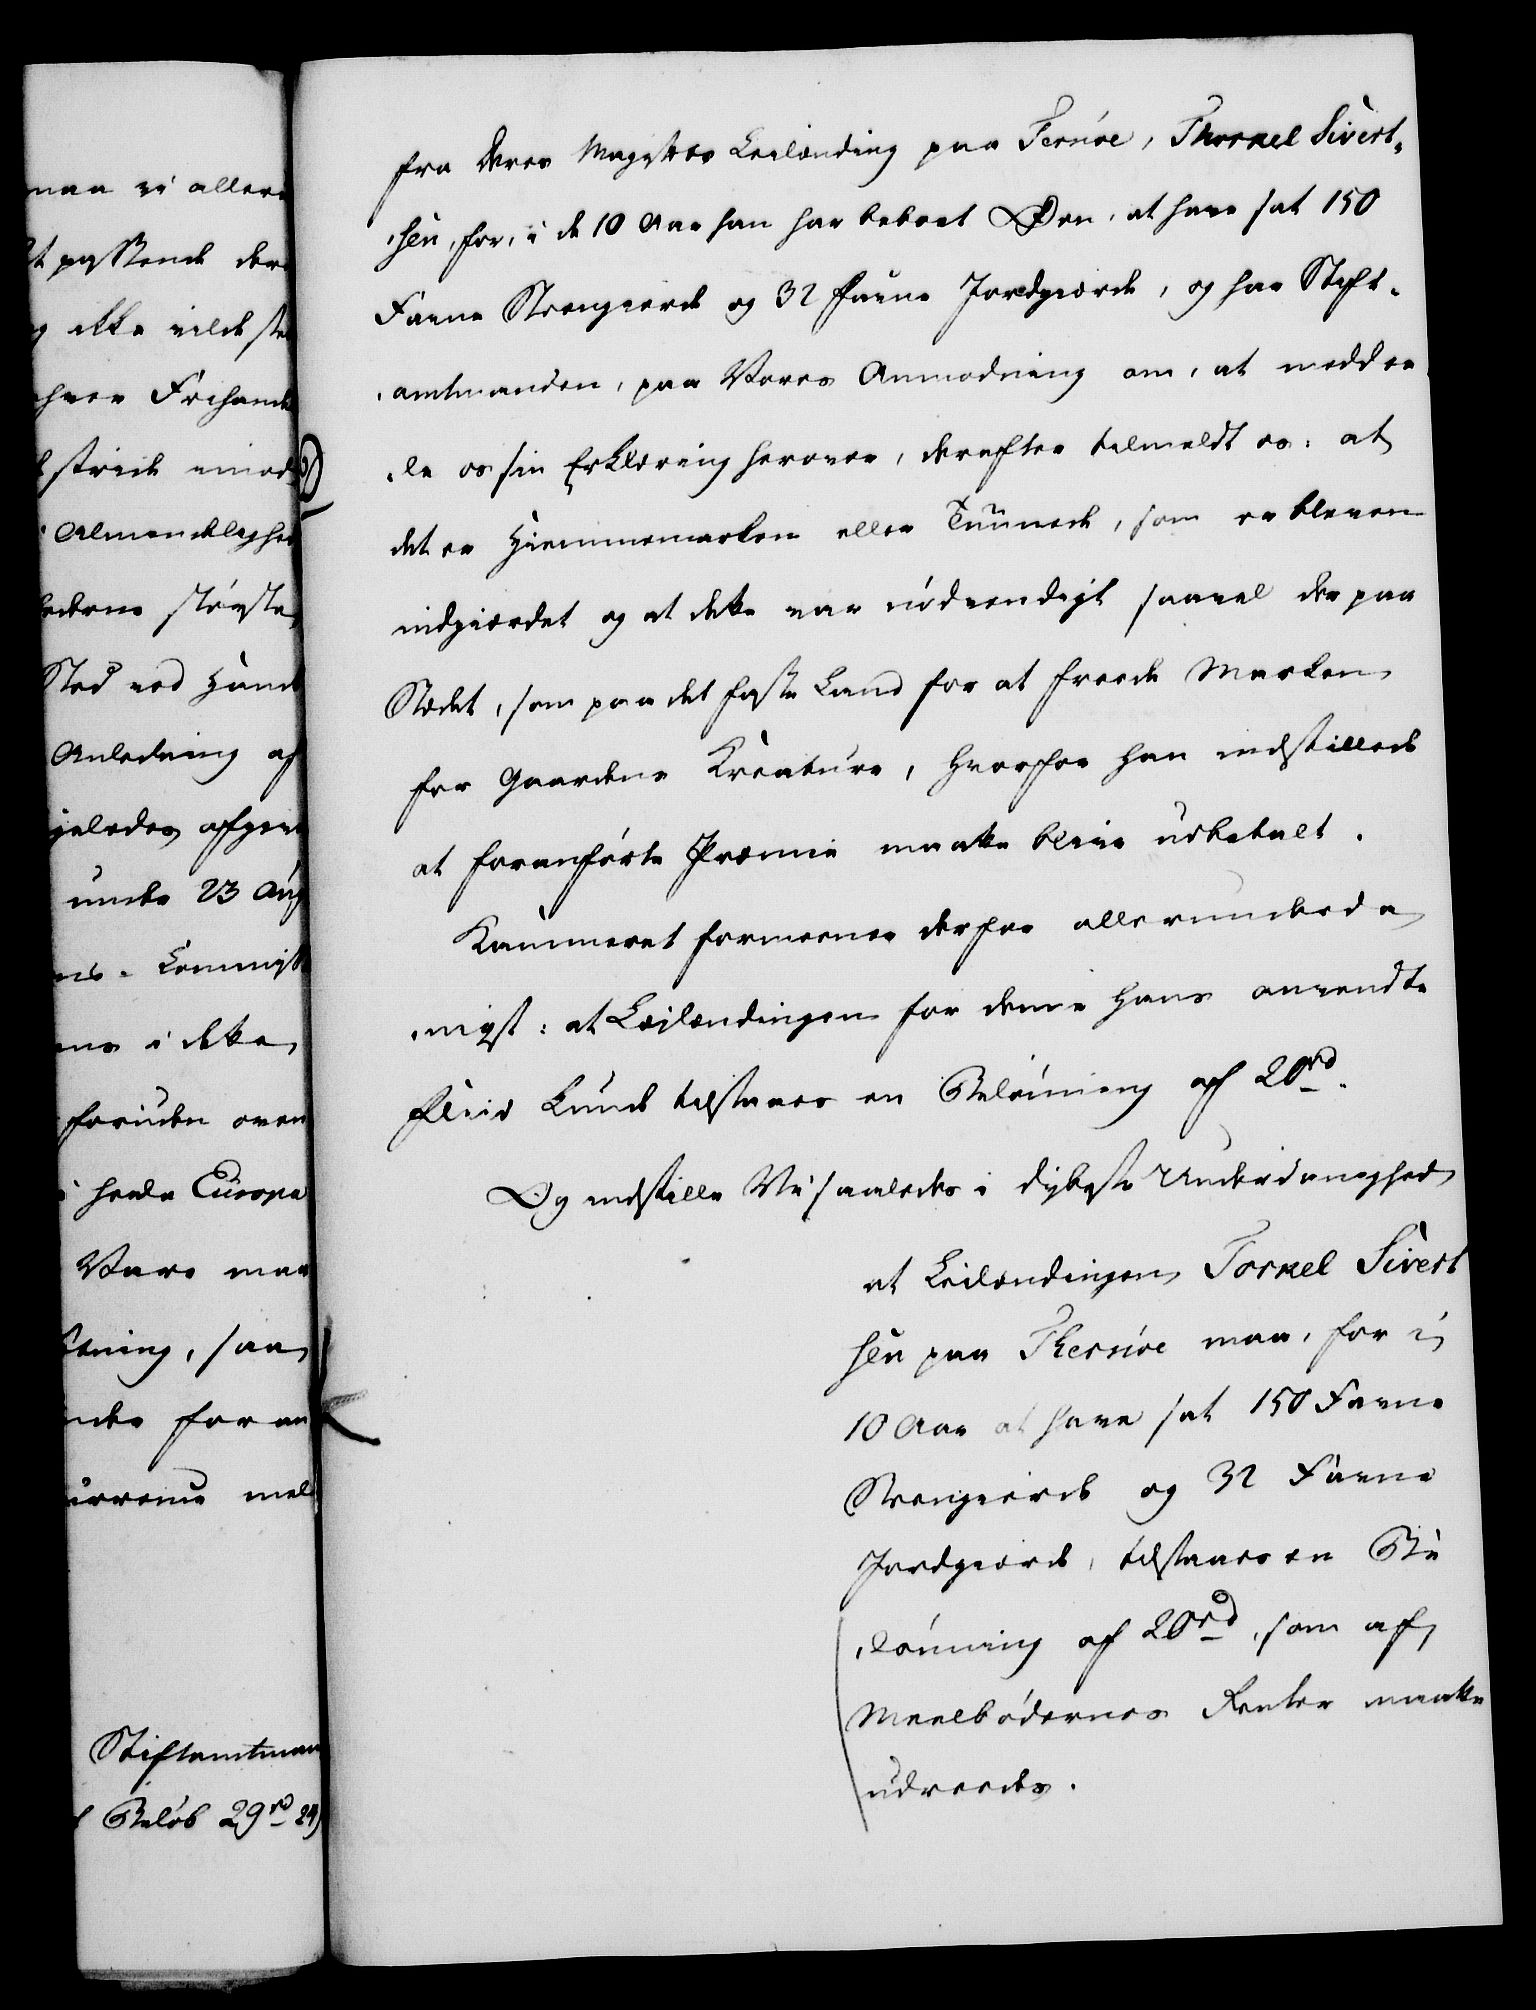 maa vi aller
t passende der
g ikke vilde sta
hver Frihand
strid imod
Almindelighed
ederne største
Sted ved Hand
Anledning af
geledes afgiv
under 23 Aug
ns. Commiss
ns i dette
foruden oven
i heele Europa
Vare maa
tning, saa
nde for an
urrence mel
Stiftamtman
Beløb 29rd 24
fra Deres Mayestæts Leilænding paa Ternøe, Thorkel Sivert-
sen, for, i de 10 Aar han har beboet Øen, at have sat 150
Favne Steengierde og 32 Favne Jordgierde, og har Stift-
amtmanden, paa Vores Anmodning om, at meddee-
le os sin Erklæring herover, derefter tilmeldt os: at
det er Hiemmemarken eller Tunnet, som er bleven
indgierdet og at dette var nødvendigt saavel der paa
Stedet, som paa det faste Land for at freede Marken
for Gaardens Kreature, hvorfor han indstillede
at foranførte Præmie maatte blive udbetalt.
Kammeret formeener derfor allerunderda-
nigst: at Leilændingen for denne Hans anvendte
Fliid kunde tilstaaes en Belønning af 20rd.
Og indstille Vi saaledes i dybeste Underdanighed
at Leilændingen Torkel Sivert
sen paa Thernøe maa, for i
10 Aar at have sat 150 Favne
Steengierde og 32 Favne
Jordgierde, tilstaaes en Be
lønning af 20rd, som af
Meelbødernes Renter maatte
udreedes.